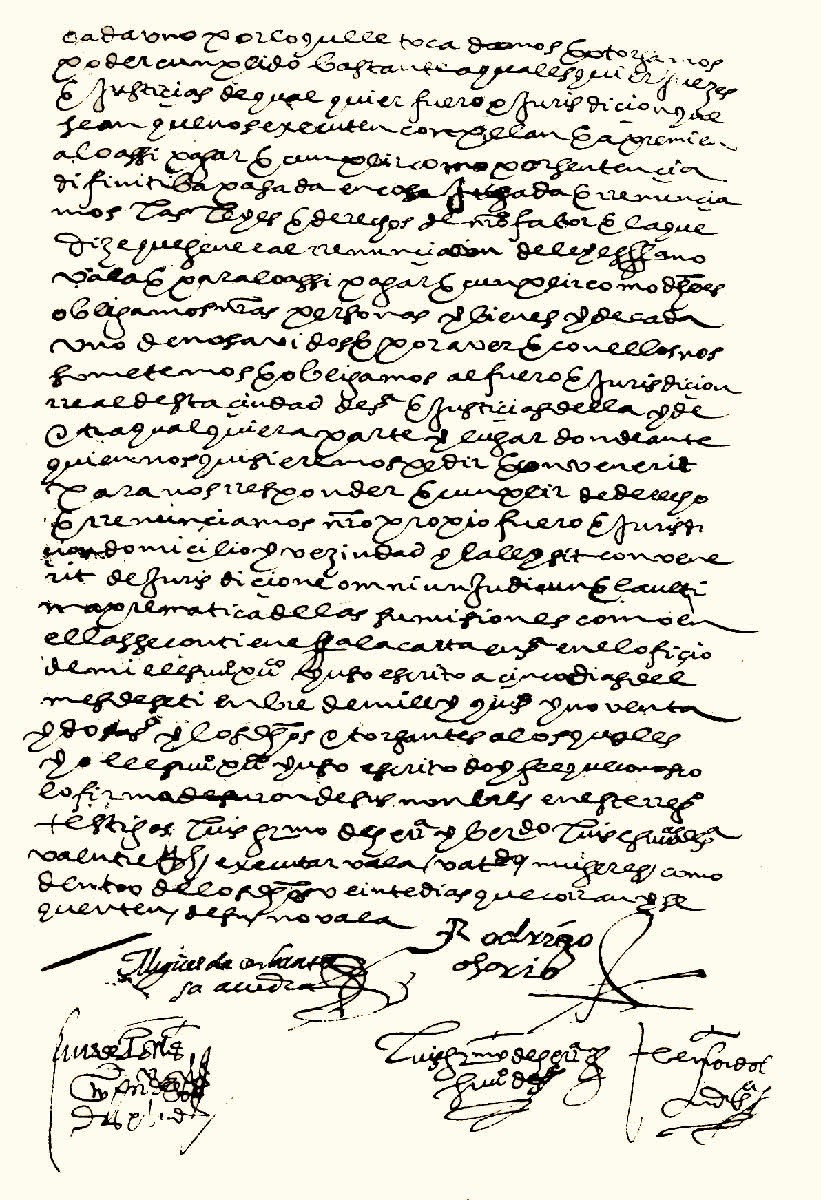 cada uno por lo que le toca damos e otorgamos
poder cunplido bastante a qualesquier juezes
e justicias de qual quier fuero e jurisdicion que
sean que nos executen conpelan e apremien
a lo assi pagar e cunplir como por sentencia
difinitiba pasada en cosa juzgada e renuncia
mos las leyes e derechos de nro fabor e la que
dize que general renunciacion de leyes ffa no
vala e para lo assi pagar e cunplir como dho es
obligamos nras personas y bienes y de cada
uno de nos avidos e por aver e con ellos nos
sometemos e obligamos al fuero e jurisdicion
rreal desta ciudad de sa e justicias della y de
otra qualquiera parte y lugar donde ante
quien nos quisieremos pedir e convenerit
para nos rresponder e cunplir de derecho
e rrenunciamos nro propio fuero e jurisdi
cion domicilio y vezindad y la ley sit convene
rit de jurisdicione omniun judicun e la ulti
ma prematica de las sumisiones como en
ellas se contiene ffa la carta en sa en el oficio
de mi el esno puco yuso escrito a cinco dias del
mes de setienbre de mill y qui s y noventa
y dos as y los dhos otorgantes a los quales
yo el esno puco yuso escrito doy fee que conosco
lo firmaron de sus nonbres en este rreg
testigos luis grmo de
executar vala
dentro de los dhos veinte dias que corran y se
quenten de sus no vala
Rodrigo
osorio
Miguel de cerbantes
saavedra
Luis grmo de
sno de sa